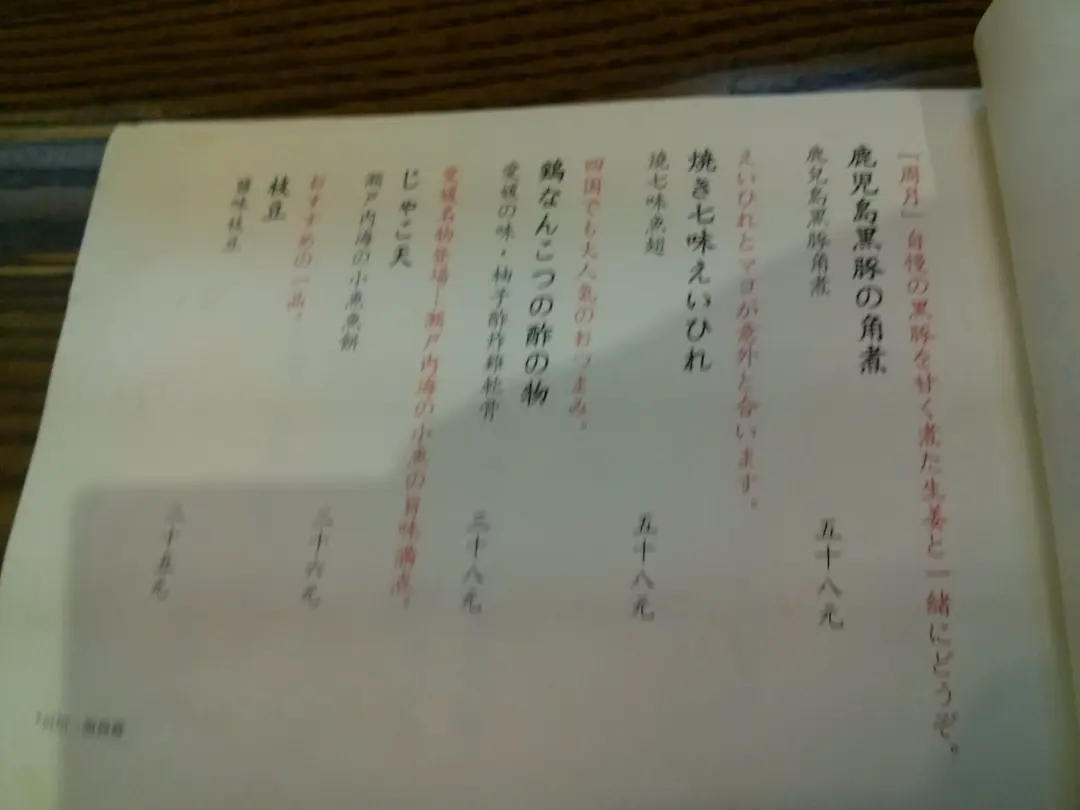 「周月」自慢の黒豚を甘く煮た生姜と一緒にどうぞ。
鹿児島黒豚の角煮
五十八元
鹿兒島黑豚角煮
えいひれとマヨが意外と合います。
焼き七味えいひれ
五十八元
燒七味魚翅
四国でも大人気のおつまみ。
鶏なんこつの酢の物
三十八元
愛媛の味・柚子酢炸雞軟骨
愛媛名物登場!瀬戸内海の小魚の旨味満点。
じゃこ天
三十六元
瀬戸内海の小魚魚餅
おすすめの一品。
枝豆
二十五元